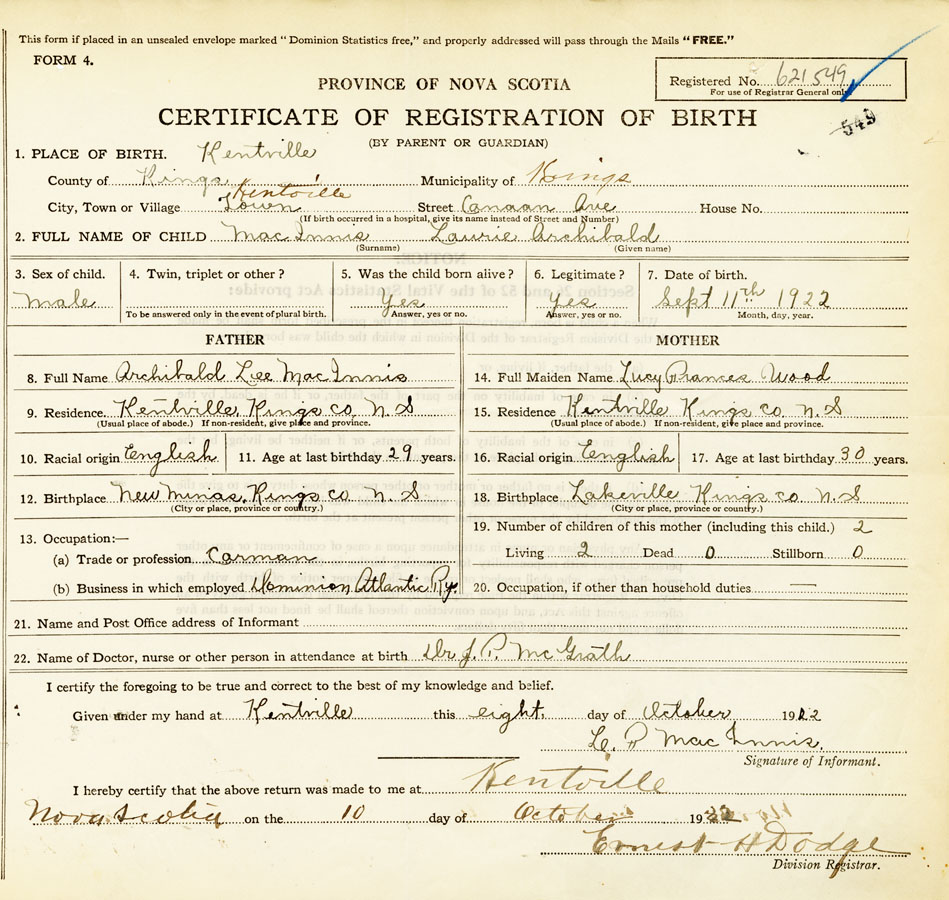 This form if placed in an unsealed envelope marked "Dominion Statistics free," and properly addressed will pass through the Mails "FREE."
FORM 4.
PROVINCE OF NOVA SCOTIA
Registered No. 621549
For use of Registrar General only
549
CERTIFICATE OF REGISTRATION OF BIRTH
(BY PARENT OR GUARDIAN)
1. PLACE OF BIRTH. Kentville
County of Kings Municipality of Kings
Kentville
City, Town or Village Town Street Canaan Ave House No.
(If birth occurred in a hospital, give its name instead of Street and Number)
2. FULL NAME OF CHILD MacInnis Laurie Archibald
(Surname) (Given name)
3. Sex of child. 4. Twin, triplet or other? 5. Was the child born alive? 6. Legitimate? 7. Date of birth.
Male Yes Yes Sept 11th 1922
To be answered only in the event of plural birth. Answer, yes or no. Answer, yes or no. Month, day, year.
FATHER MOTHER
8. Full Name Archibald Lee MacInnis 14. Full Maiden Name Lucy Frances Wood
9. Residence. Kentville Kings co N.S 15. Residence Kentville Kings co N.S
(Usual place of abode.) If non-resident, give place and province. (Usual place of abode.) If non-resident, give place and province.
10. Racial origin English 11. Age at last birthday 29 years. 16. Racial origin English 17. Age at last birthday 30 years.
12. Birthplace New Minas, Kings co N. S. 18. Birthplace Lakeville Kings co N.S
(City or place, province or country.) (City or place, province or country.)
13. Occupation:— 19. Number of children of this mother (including this child.) 2
(a) Trade or profession Carman Living 2 Dead 0 Stillborn 0
(b) Business in which employed Dominion Atlantic Ry. 20. Occupation, if other than household duties —
21. Name and Post Office address of Informant
22. Name of Doctor, nurse or other person in attendance at birth Dr J. P. McGrath
I certify the foregoing to be true and correct to the best of my knowledge and belief.
Given under my hand at Kentville this eight day of October 1922
MacInnis.
Signature of Informant.
I hereby certify that the above return was made to me at Kentville
Nova Scotia on the 10 day of October 1922
Ernest H Dodge
Division Registrar.